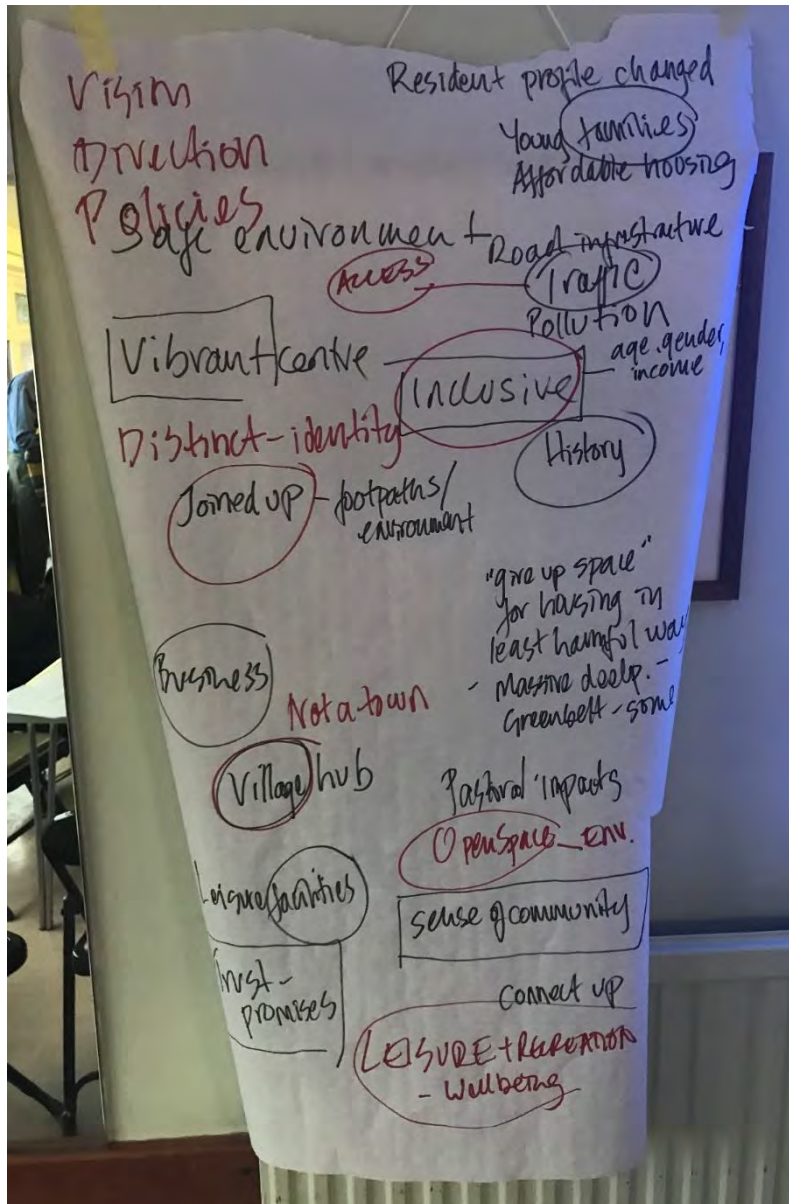 Vision
Direction
Policies
Resident profile changed
Young families
Affordable housing
Safe environment
Road infrastructure
Access
Traffic
Pollution
Vibrant centre
Inclusive
age, gender,
income
Distinct-identity
History
Joined up - footpaths/
environment
"give up space"
for housing in
least harmful way
- Massive devlp. -
Greenbelt - some
Business
Not a town
Village hub
Pastoral impacts
Open Space - Env.
Leisure facilities
sense of community
Trust -
promises
Connect up
LEISURE + RECREATION
- Wellbeing